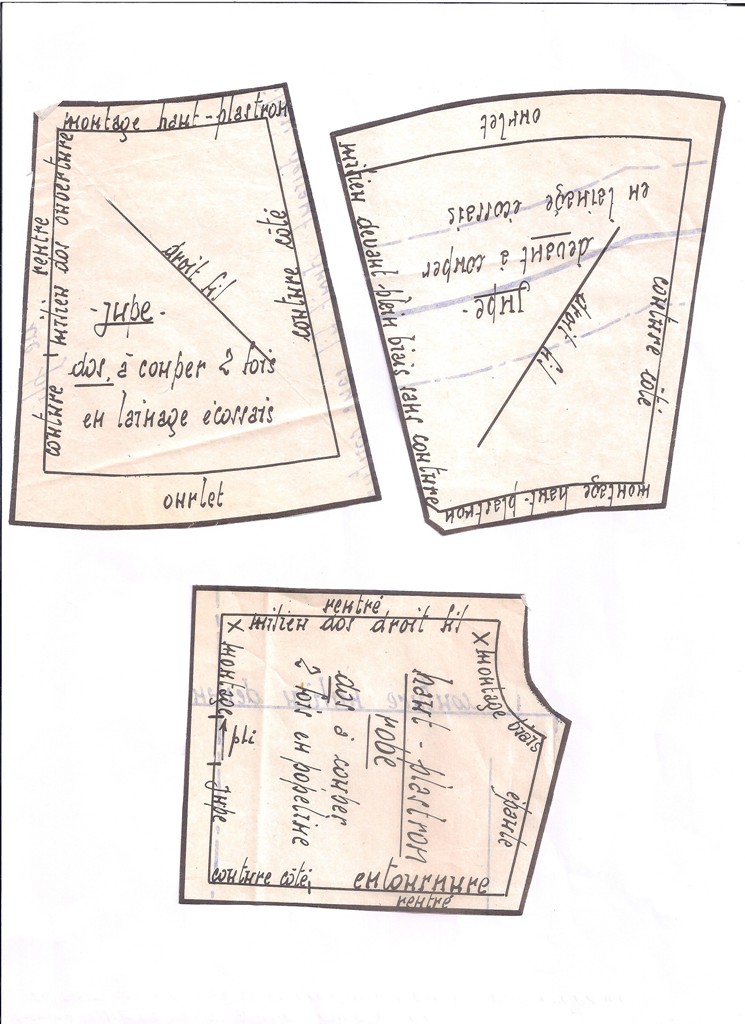 montage haut-plastron
couture
rentré
milieu dos ouverture
droit fil
couture côté
-jupe-
dos, à couper 2 fois
en lainage écossais
ourlet
ourlet
milieu devant plein biais sans couture
-jupe-
devant à couper
en lainage écossais
droit fil
couture côté
montage haut-plastron
rentré
milieu dos droit fil
X
X
montage biais
épaule
montage
pli
jupe
haut-plastron
robe
dos à couper
2 fois en popeline
couture côté
entournure
rentré